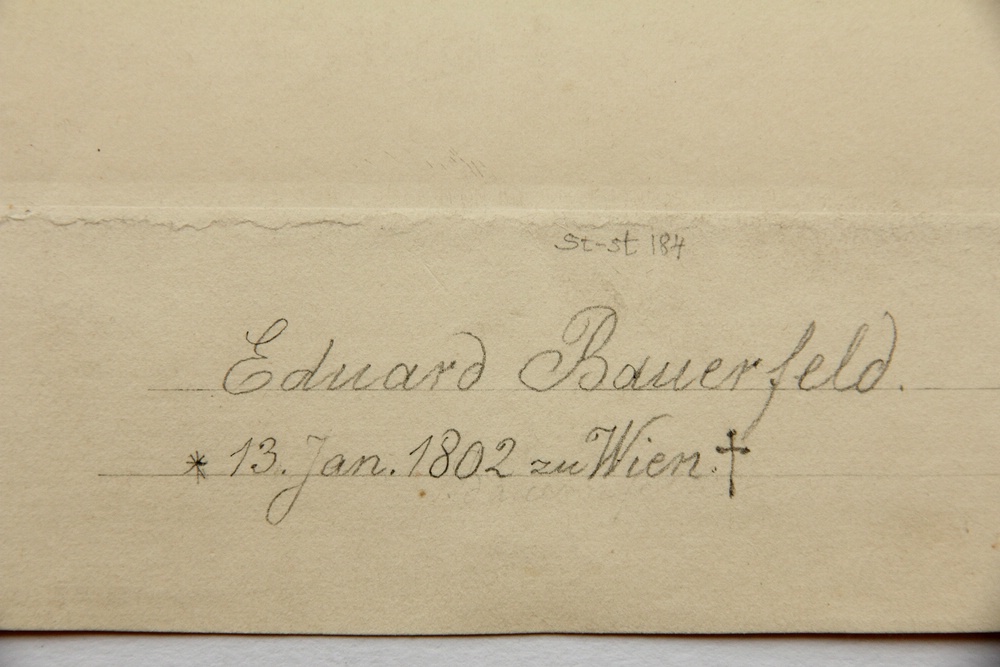 St-st 184
Eduard Bauerfeld.
* 13. Jan. 1802 zu Wien. †